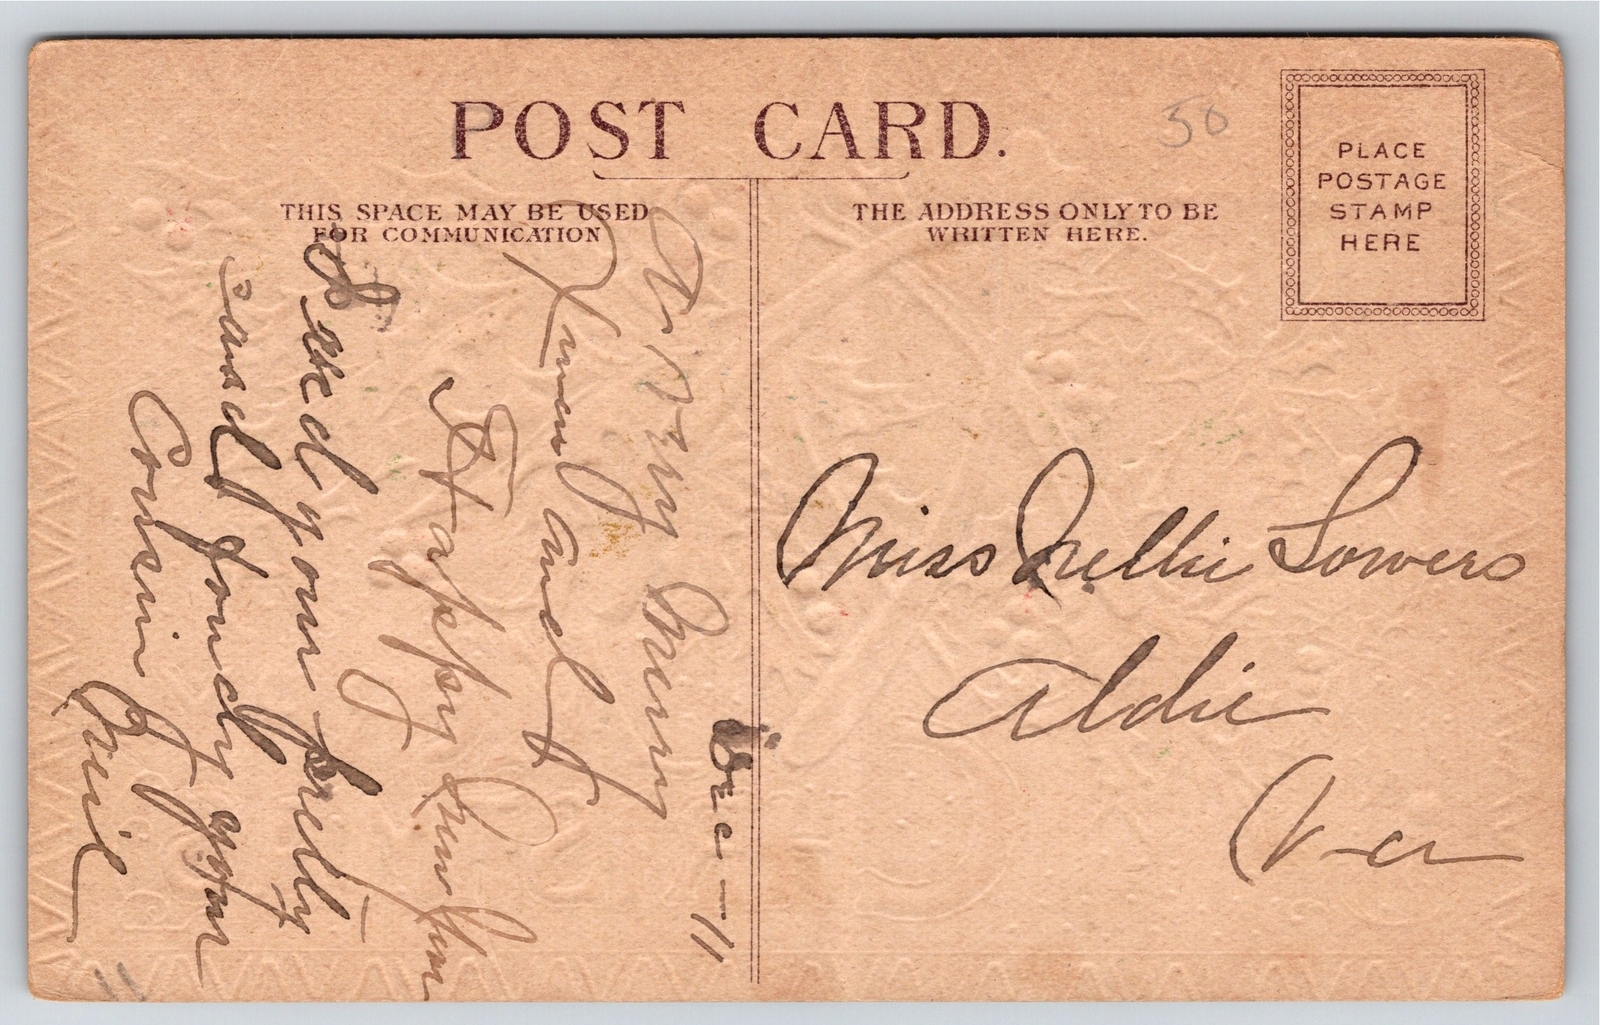 POST CARD.
50
PLACE
POSTAGE
STAMP
HERE
THIS SPACE MAY BE USED
FOR COMMUNICATION
THE ADDRESS ONLY TO BE
WRITTEN HERE.
Miss Nellie Lowers
Aldie
Va
Dec - 11
A Very Merry
Xmas and
A Happy New Year
Recd your pretty
Card fondly your
Cousin